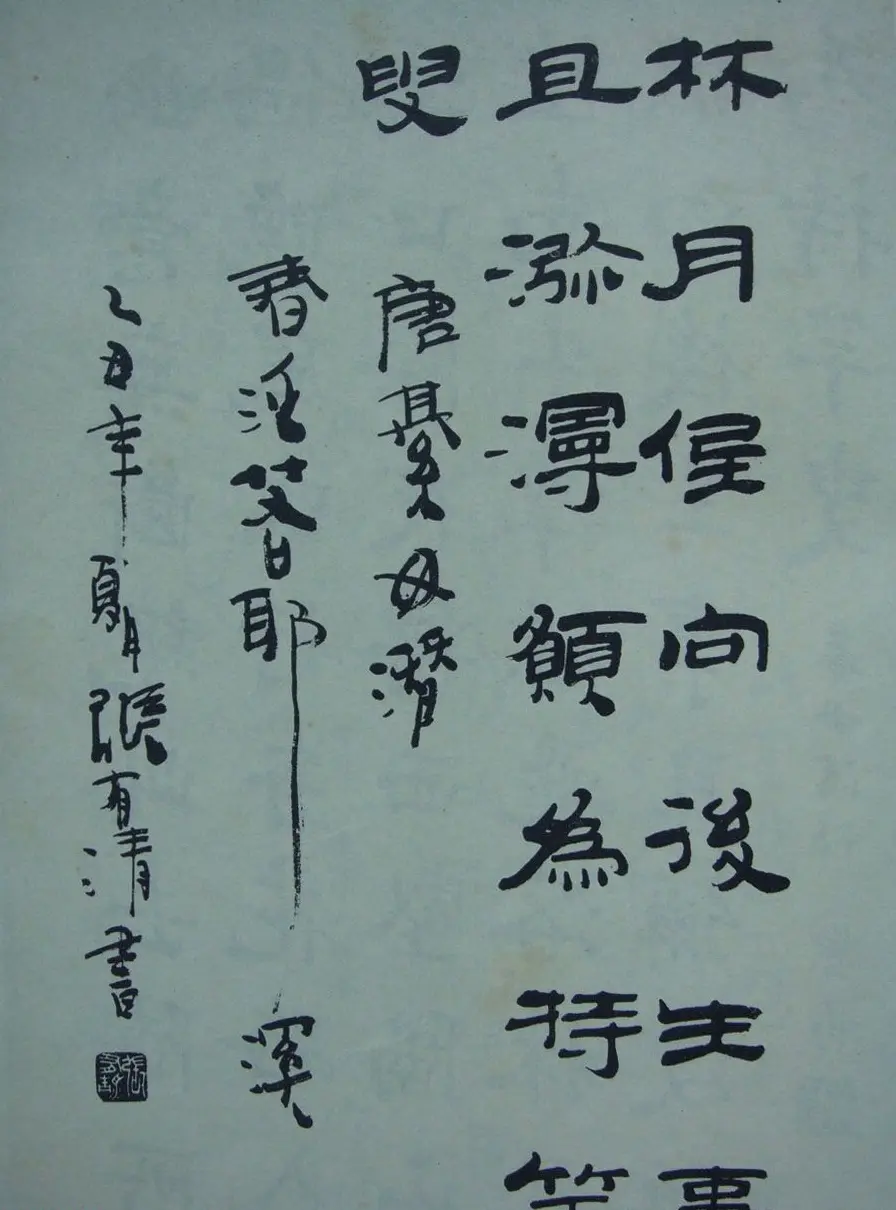 林月低向後生事
且瀰漫願為持竿
叟
唐綦毋潛
春泛若耶溪
乙丑年夏月張有清書